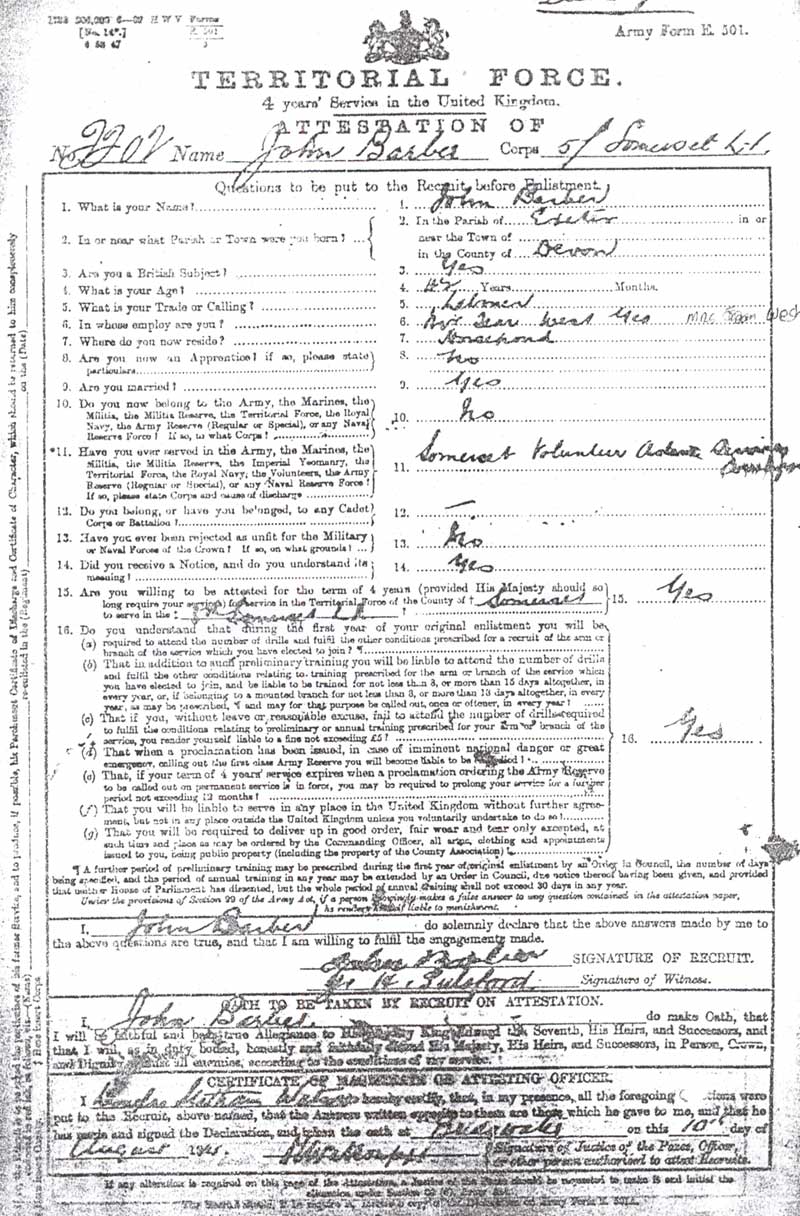 Army Form E. 501.
TERRITORIAL FORCE.
4 years' Service in the United Kingdom.
ATTESTATION OF
No. Name John Barber Corps 5/ Somerset L.I.
Questions to be put to the Recruit before Enlistment.
1. What is your Name? 1. John Barber
2. In or near what Parish or Town were you born? 2. In the Parish of Exeter in or
near the Town of
in the County of Devon
3. Are you a British Subject? 3. Yes
4. What is your Age? 4. 42 Years Months.
5. What is your Trade or Calling? 5.
6. In whose employ are you? 6.
7. Where do you now reside? 7.
8. Are you now an Apprentice? if so, please state 8. No
particulars
9. Are you married? 9. Yes
10. Do you now belong to the Army, the Marines, the
Militia, the Militia Reserve, the Territorial Force, the Royal
Navy, the Army Reserve (Regular or Special), or any Naval 10. No
Reserve Force? If so, to what Corps?
*11. Have you ever served in the Army, the Marines, the
Militia, the Militia Reserve, the Imperial Yeomanry, the
Territorial Force, the Royal Navy, the Volunteers, the Army 11. Somerset Volunteer
Reserve (Regular or Special), or any Naval Reserve Force?
If so, please state Corps and cause of discharge
12. Do you belong, or have you belonged, to any Cadet 12. —
Corps or Battalion?
13. Have you ever been rejected as unfit for the Military 13. No
or Naval Forces of the Crown? If so, on what grounds?
14. Did you receive a Notice, and do you understand its 14. Yes
meaning?
15. Are you willing to be attested for the term of 4 years (provided His Majesty should so
long require your services) for service in the Territorial Force of the County of † Somerset 15. Yes
to serve in the Somerset L.I.
16. Do you understand that during the first year of your original enlistment you will be
(a) required to attend the number of drills and fulfil the other conditions prescribed for a recruit of the arm or
branch of the service which you have elected to join? ¶
(b) That in addition to such preliminary training you will be liable to attend the number of drills
and fulfil the other conditions relating to training prescribed for the arm or branch of the service which
you have elected to join, and be liable to be trained for not less than 8, or more than 15 days altogether, in
every year, or, if belonging to a mounted branch for not less than 8, or more than 18 days altogether, in every
year, as may be prescribed, ¶ and may for that purpose be called out, once or oftener, in every year?
(c) That if you, without leave or reasonable excuse, fail to attend the number of drills required
to fulfil the conditions relating to preliminary or annual training prescribed for your arm or branch of the
service, you render yourself liable to a fine not exceeding £5? 16. Yes
(d) That when a proclamation has been issued, in case of imminent national danger or great
emergency, calling out the first class Army Reserve you will become liable to be
(e) That, if your term of 4 years' service expires when a proclamation ordering the Army Reserve
to be called out on permanent service is in force, you may be required to prolong your service for a further
period not exceeding 12 months?
(f) That you will be liable to serve in any place in the United Kingdom without further agree-
ment, but not in any place outside the United Kingdom unless you voluntarily undertake to do so!
(g) That you will be required to deliver up in good order, fair wear and tear only excepted, at
such time and place as may be ordered by the Commanding Officer, all arms, clothing and appointments
issued to you, being public property (including the property of the County Association)?
¶ A further period of preliminary training may be prescribed during the first year of original enlistment by an Order in Council, the number of days
being specified, and the period of annual training in any year may be extended by an Order in Council, due notice thereof having been given, and provided
that neither House of Parliament has dissented, but the whole period of annual training shall not exceed 30 days in any year.
Under the provisions of Section 99 of the Army Act, if a person knowingly makes a false answer to any question contained in the attestation paper,
he renders himself liable to punishment.
I, John Barber do solemnly declare that the above answers made by me to
the above questions are true, and that I am willing to fulfil the engagements made.
John Barber SIGNATURE OF RECRUIT.
Signature of Witness.
OATH TO BE TAKEN BY RECRUIT ON ATTESTATION.
I, John Barber do make Oath, that
I will be faithful and bear true Allegiance to His Majesty King Edward the Seventh, His Heirs, and Successors, and
that I will, as in duty bound, honestly and faithfully defend His Majesty, His Heirs, and Successors, in Person, Crown,
and Dignity against all enemies, according to the conditions of my service.
CERTIFICATE OF MAGISTRATE OR ATTESTING OFFICER.
I do hereby certify, that, in my presence, all the foregoing were
put to the Recruit, above named, that the Answers written opposite to them are those which he gave to me, and that he
has made and signed the Declaration, and taken the oath at Bridgwater on this 10th day of
August
Signature of Justice of the Peace, Officer,
or other person authorised to attest Recruits.